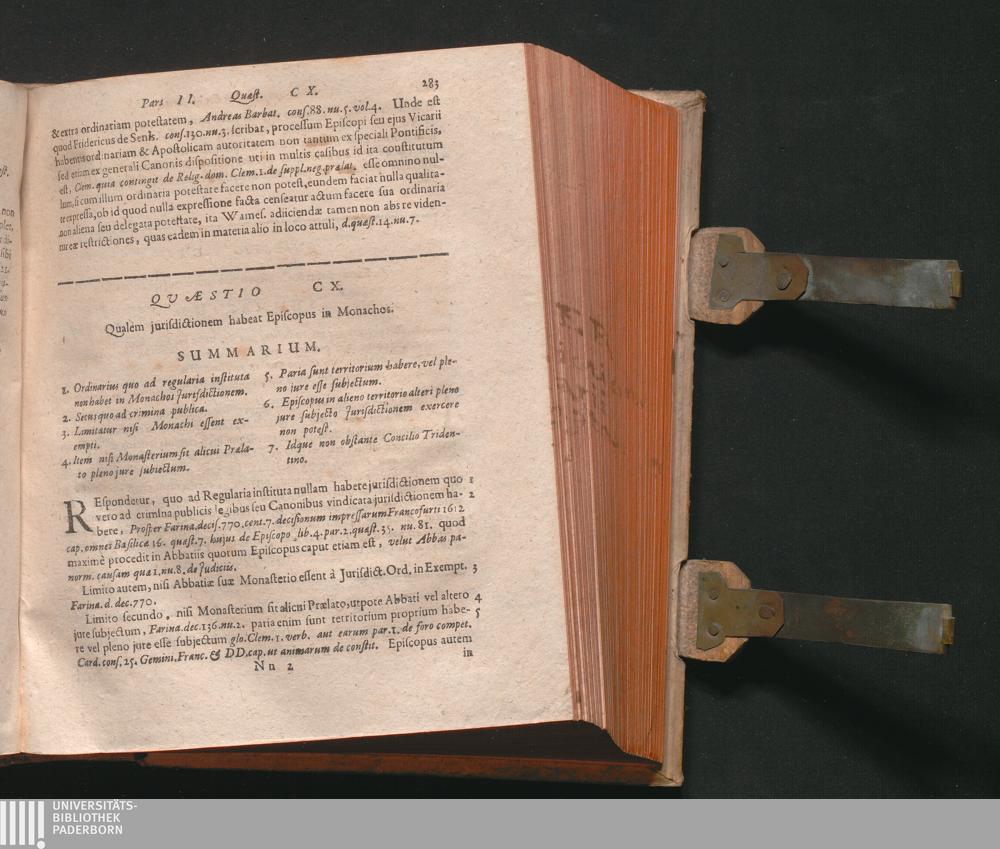 Pars II. Quæst. CX. 283
& extra ordinariam potestatem, Andreas Barbat. conſ.88.nu.5.vol.4. Unde eſt
quod Fridericus de Senk. conſ.130.nu.3. ſcribat, proceſſum Epiſcopi ſeu ejus Vicarii
habentis ord:nariam & Apoſtolicam autoritatem non tantum ex ſpeciali Pontificis,
ſed etiam ex generali Canonis diſpoſitione uti in multis caſibus id ita conſtitutum
eſt, Clem. quia contingit de Relig. dom. Clem.1.de ſuppl.neg.prælat. eſſe omnino nul-
lum, ſi cum illum ordinaria poteſtate facere non poteſt, eundem faciat nulla qualita-
te expreſſa, ob id quod nulla expreſſione facta cenſeatur actum facere ſua ordinaria
non aliena ſeu delegata poteſtate, ita Wameſ. adiiciendæ tamen non abs re viden-
tur eæ reſtrictiones, quas eadem in materia alio in loco attuli, d.quæſt.14.nu.7.
QVÆSTIO CX.
Qualem jurisdictionem habeat Epiſcopus in Monachos.
SUMMARIUM.
1. Ordinarius quo ad regularia inſtituta
non habet in Monachos Jurisdictionem.
2. Secus quo ad crimina publica.
3. Limitatur niſi Monachi eſſent ex-
empti.
4. Item niſi Monaſterium ſit alicui Præla-
to pleno jure ſubiectum.
5. Paria ſunt territorium habere, vel ple-
no jure eſſe ſubjectum.
6. Epiſcopus in alieno territorio alteri pleno
jure ſubjecto Jurisdictionem exercere
non poteſt.
7. Idque non obſtante Concilio Triden-
tino.
REſpondetur, quo ad Regularia inſtituta nullam habere jurisdictionem quo 1
vero ad crimina publicis legibus ſeu Canonibus vindicata jurisdictionem ha- 2
bere, Proſper Farina.deciſ.770.cent.7.deciſionum impreſſarum Francofurti 1612
cap. omnes Baſilicæ 16. quæſt.7. hujus de Epiſcopo lib.4.par.2.quæſt.35. nu.81. quod
maximè procedit in Abbatiis quotum Epiſcopus caput etiam eſt, velut Abbas pa-
norm. cauſam quæ 1.nu.8.de Judiciis.
Limito autem, niſi Abbatiæ ſuæ Monaſterio eſſent à Jurisdict. Ord. in Exempt. 3
Farina. d. dec.770.
Limito ſecundo, niſi Monaſterium ſit alicui Prælato, utpote Abbati vel altero 4
jure ſubjectum, Farina.dec.136.nu.2. paria enim ſunt territorium proprium habe- 5
re vel pleno jure eſſe ſubjectum glo.Clem.1.verb. aut earum par.1.de foro compet.
Card.conſ.25. Gemini.Franc.& DD.cap.ut animarum de conſtit. Epiſcopus autem
Nn 2 in
UNIVERSITÄTS-
BIBLIOTHEK
PADERBORN